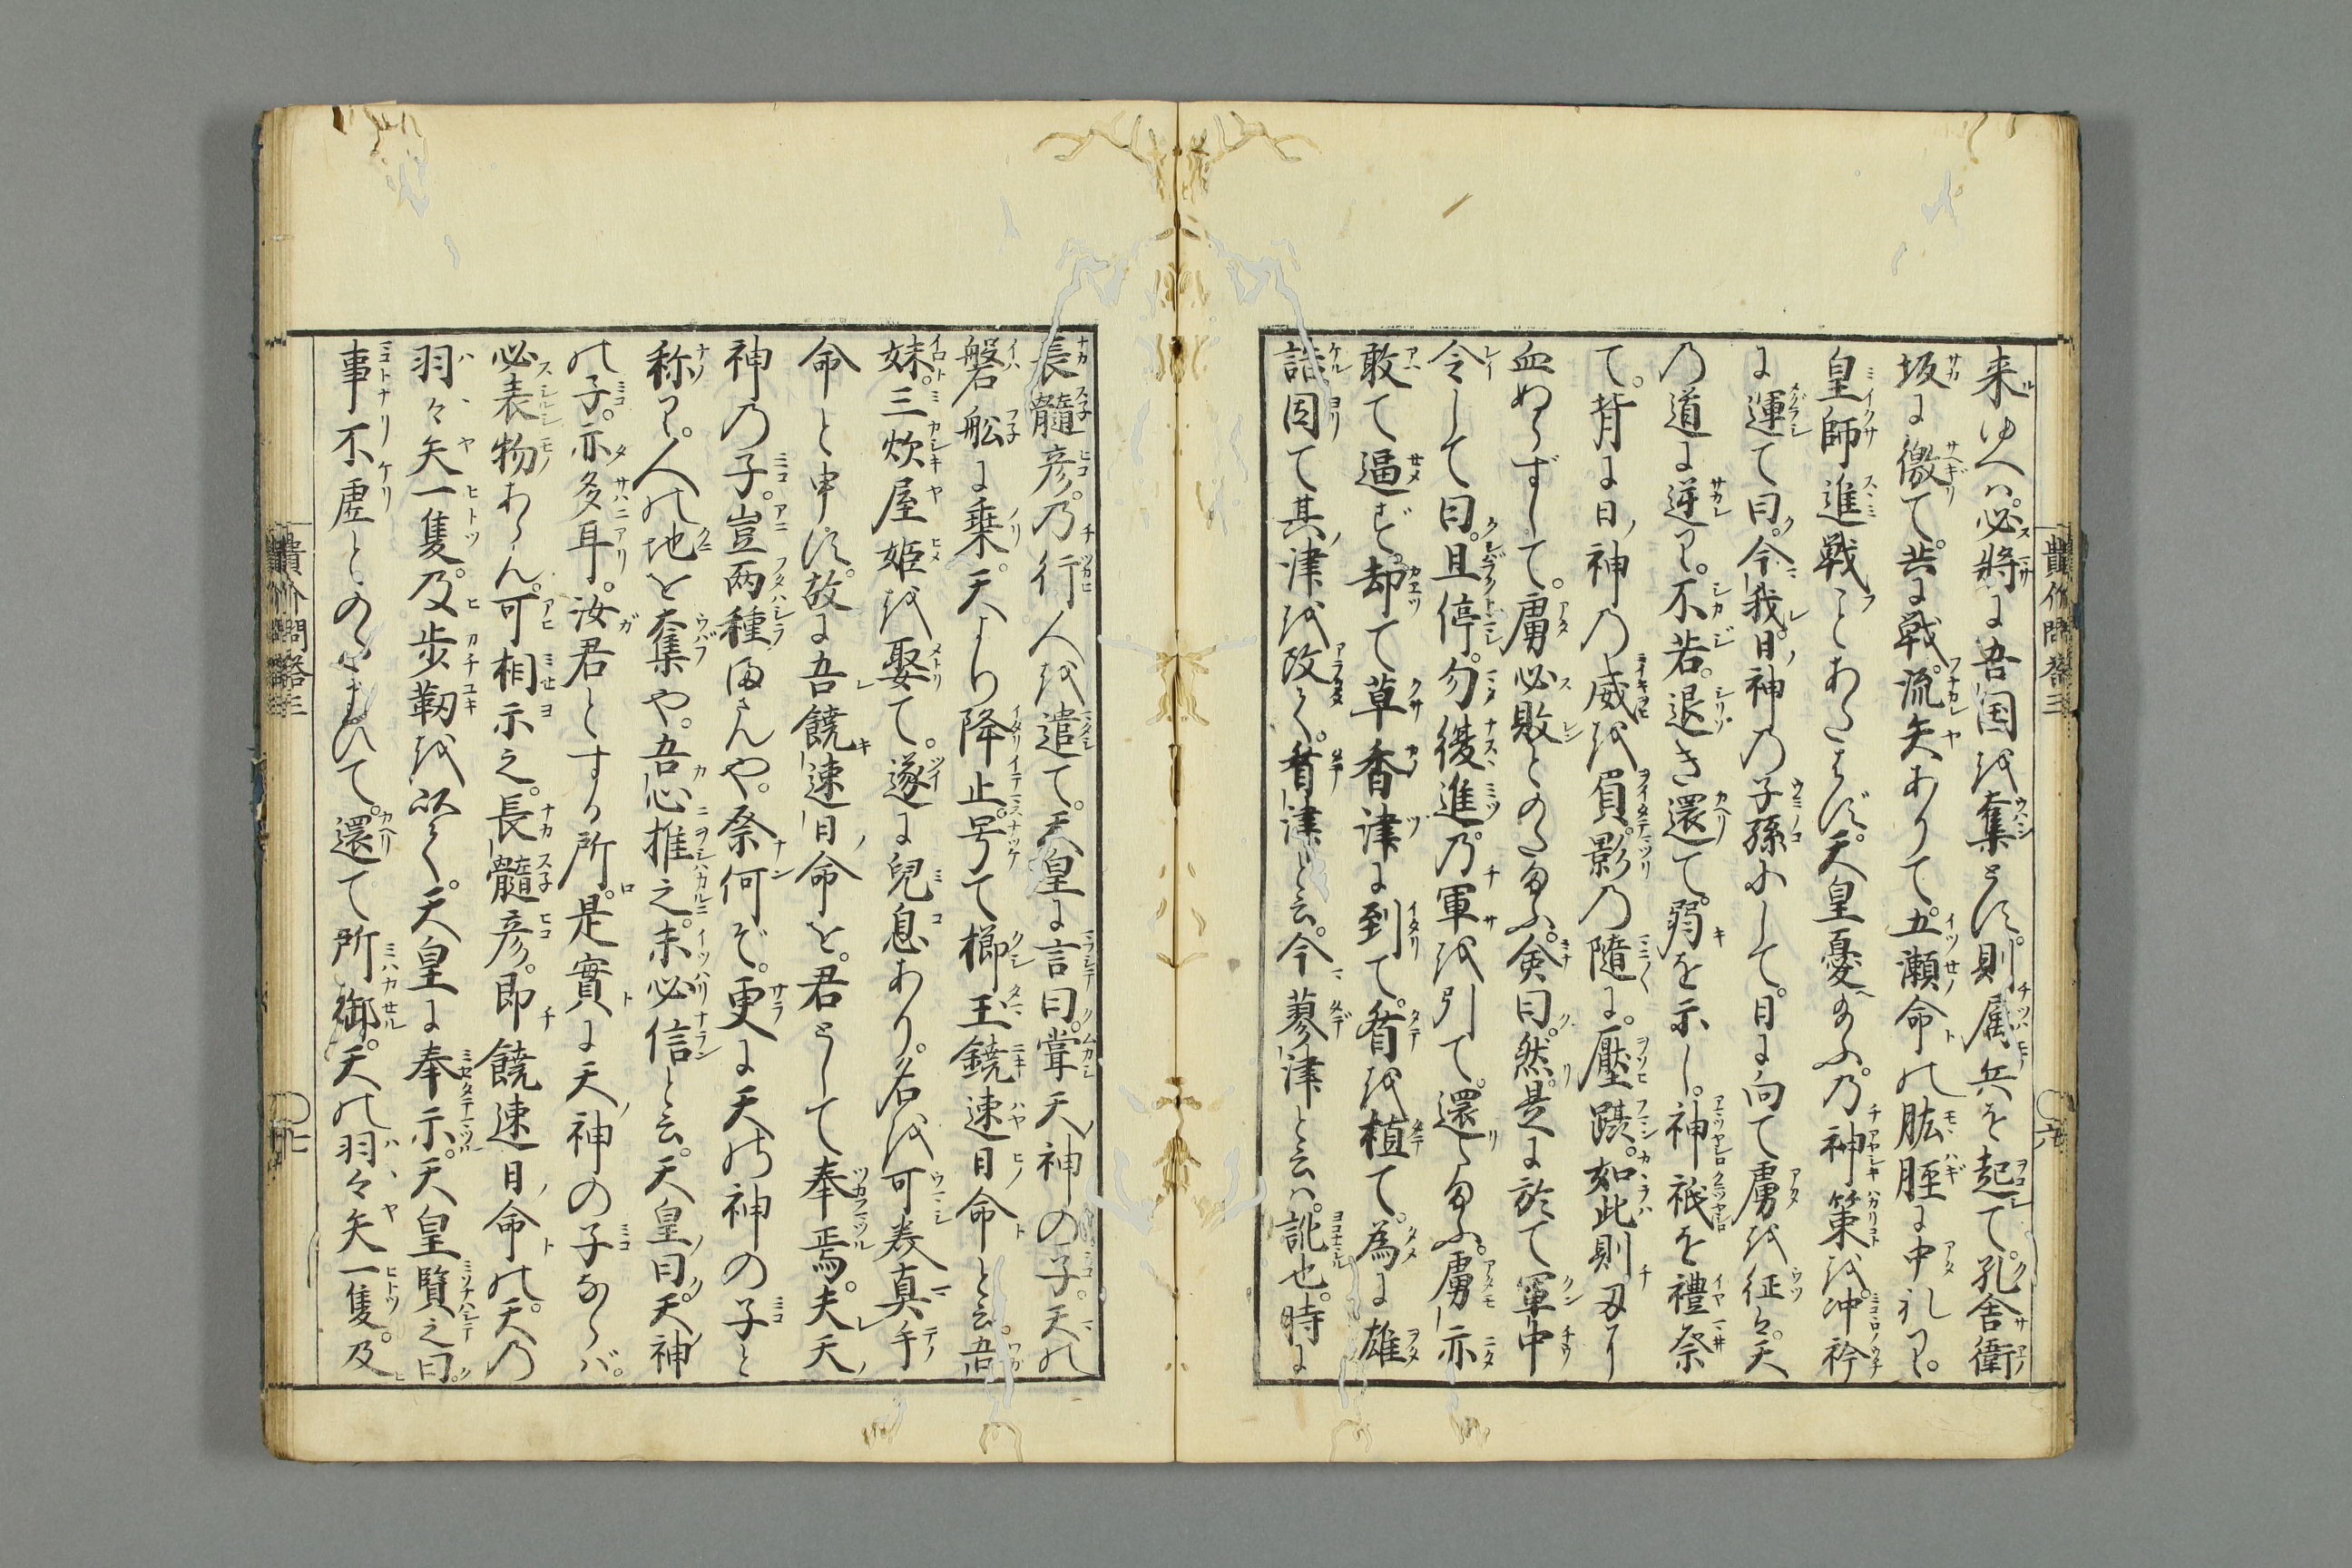 来ゆへは。必将に吾国を奪とす。則属兵を起て。孔舎衛
坂に徼て。共に戦。流矢ありて。五瀬命の肱脛に中れり。
皇師進戦ことあたはず。天皇憂給ふ。乃神策を冲衿
に運て曰。今我日神の子孫にして。日に向て虜を征は。天
の道に逆り。不若。退き還て。弱を示し。神祇を禮祭
て。背に日神の威を負。影の随に。壓躡。如此則刃に
血ぬらずして。虜必敗とのたまふ。僉曰。然。是に於て軍中
令して曰。且停。勿復進。乃軍を引て。還たまふ。虜亦
敢て逼ず。却て草香津に到て。盾を植て。為に雄
誥。因て其津を改く。盾津と云。今蓼津と云は。訛也。時に
長髓彦。乃行人を遣て。天皇に言曰。甞天神の子。天の
磐舩に乗。天より降止。号て櫛玉饒速日命と云。吾
妹。三炊屋姫を娶て。遂に兒息あり。名を可美真手
命と申す。故に吾饒速日命を。君として奉焉。夫天
神の子。豈両種まさんや。奈何ぞ。更に天の神の子と
称り。人の地を奪や。吾心推之。未必信と云。天皇曰。天神
の子。亦多耳。汝君とする所。是實に天神の子ならバ。
必表物あらん。可相示之。長髓彦。即饒速日命の。天の
羽々矢一隻。及歩靫を以く。天皇に奉示。天皇覧之曰。
事不虚とのたまひて。還て所御。天の羽々矢一隻。及